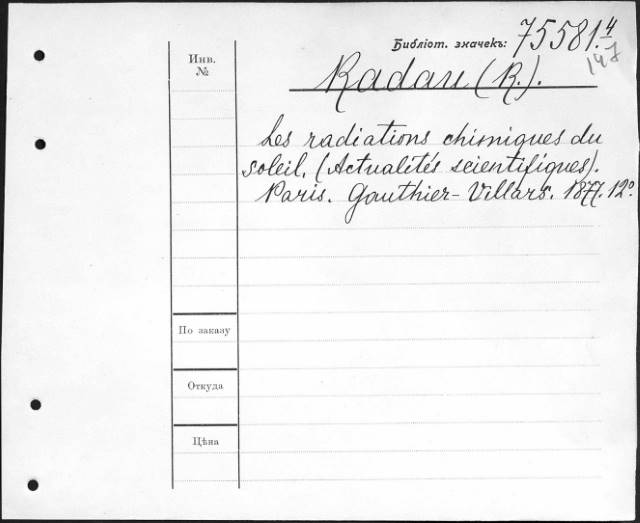 Библіот. значекъ: 75581.4
147
Инв.
№
Radau (R.).
Les radiations chimiques du
soleil. (Actualités scientifiques).
Paris. Gauthier-Villars. 1877. 12º
По заказу
Откуда
Цѣна